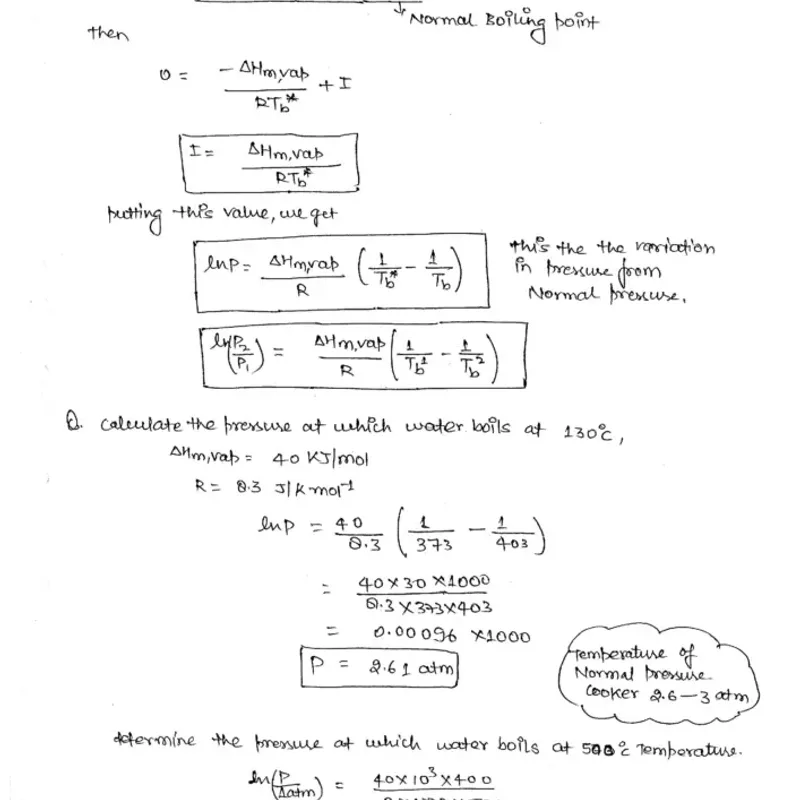 Normal Boiling point
then
0 = -ΔHm,vap / RTb* + I
I = ΔHm,vap / RTb*
putting this value, we get
lnP = ΔHm,vap / R (1/Tb* - 1/Tb)
this the the variation
in pressure from
Normal pressure.
ln(P2/P1) = ΔHm,vap / R (1/Tb1 - 1/Tb2)
Q. Calculate the pressure at which water boils at 130°C,
ΔHm,vap = 40 KJ/mol
R = 8.3 J/K mol-1
lnP = 40/8.3 (1/373 - 1/403)
= 40×30×1000 / 8.3×373×403
= 0.00096 ×1000
P = 2.61 atm
Temperature of
Normal pressure
Cooker 2.6–3 atm
determine the pressure at which water boils at 500°C Temperature.
ln(P/1atm) = 40×10³×400